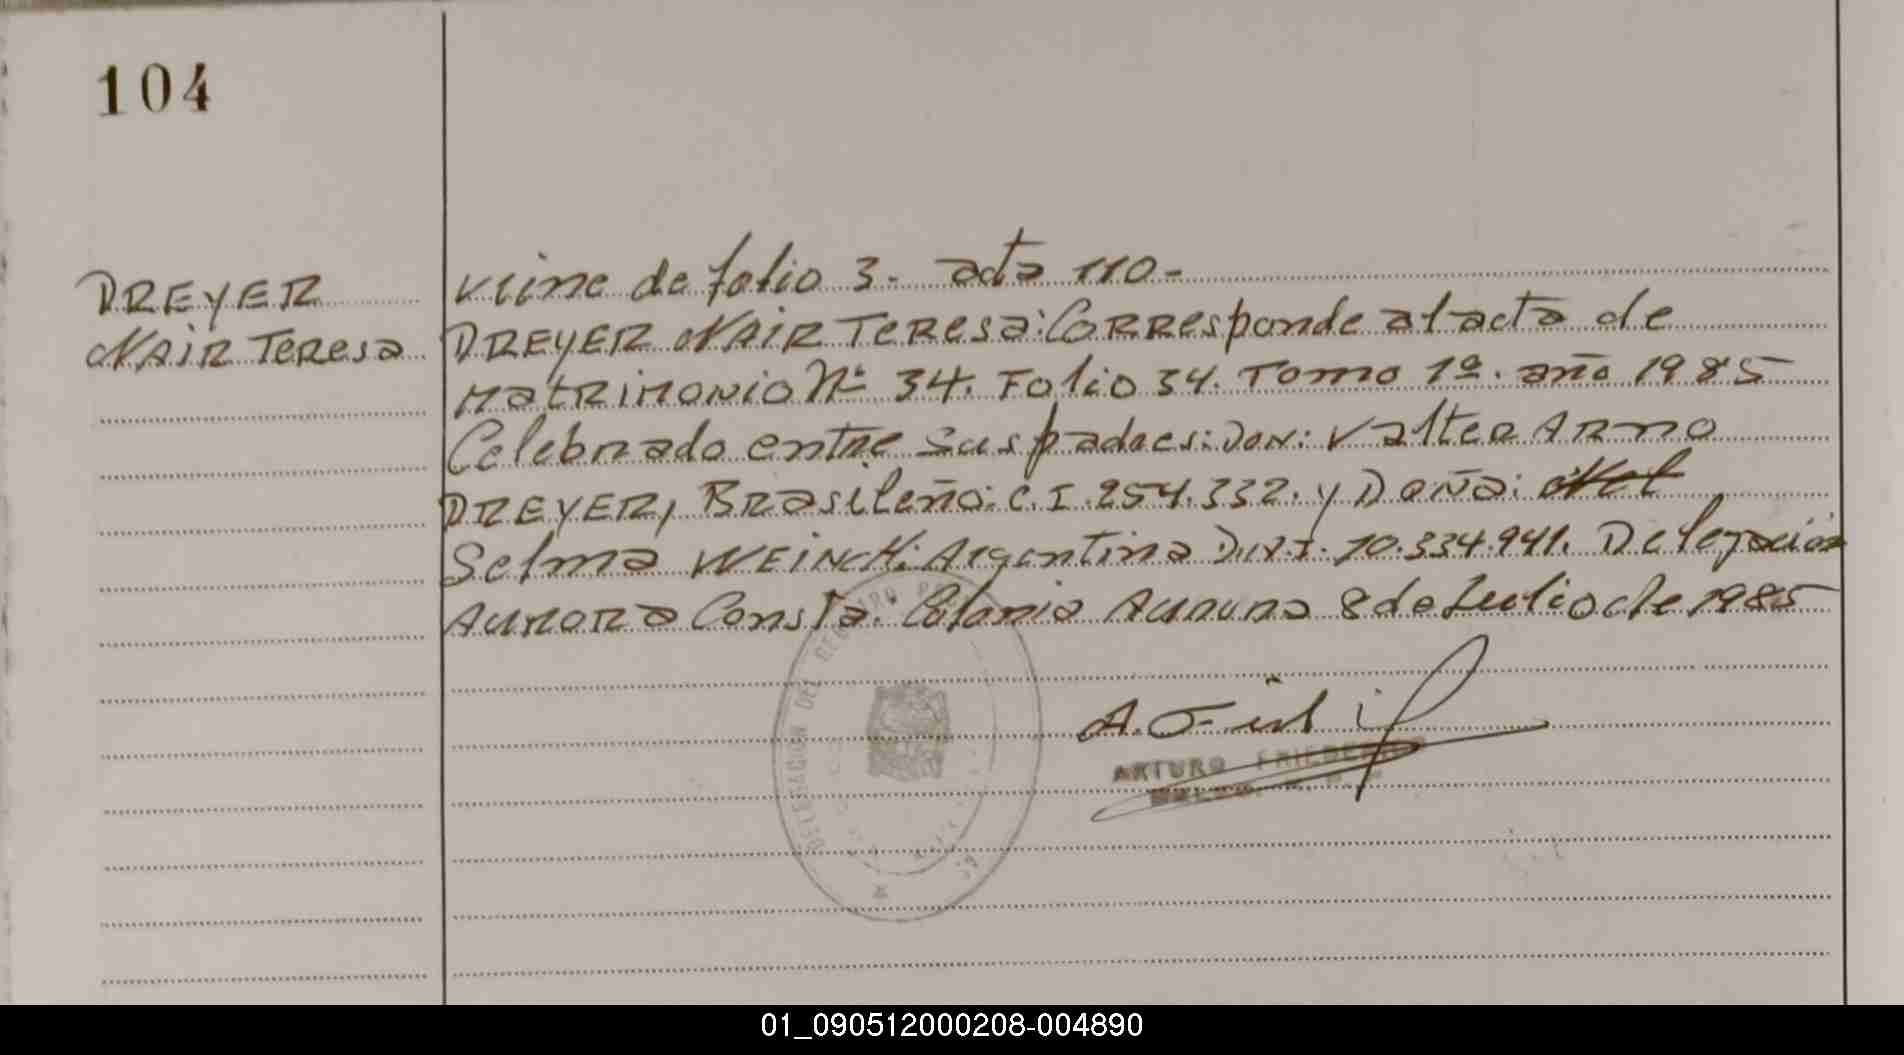 104
DREYER
NAIR Teresa
viene de folio 3. acta 110-
DREYER NAIR Teresa: Corresponde al acta de
Matrimonio Nº 34. Folio 34. Tomo 1º. año 1985
Celebrado entre sus padres: Don: Valter Arno
DREYER, Brasileño: C.I. 254.332. y Doña:
Selma WEINCH: Argentina D.N.I. 10.334.941. Delegación
Aurora Consta. Colonia Aurora 8 de Julio de 1985
DELEGACION DEL
ARTURO
01_090512000208-004890